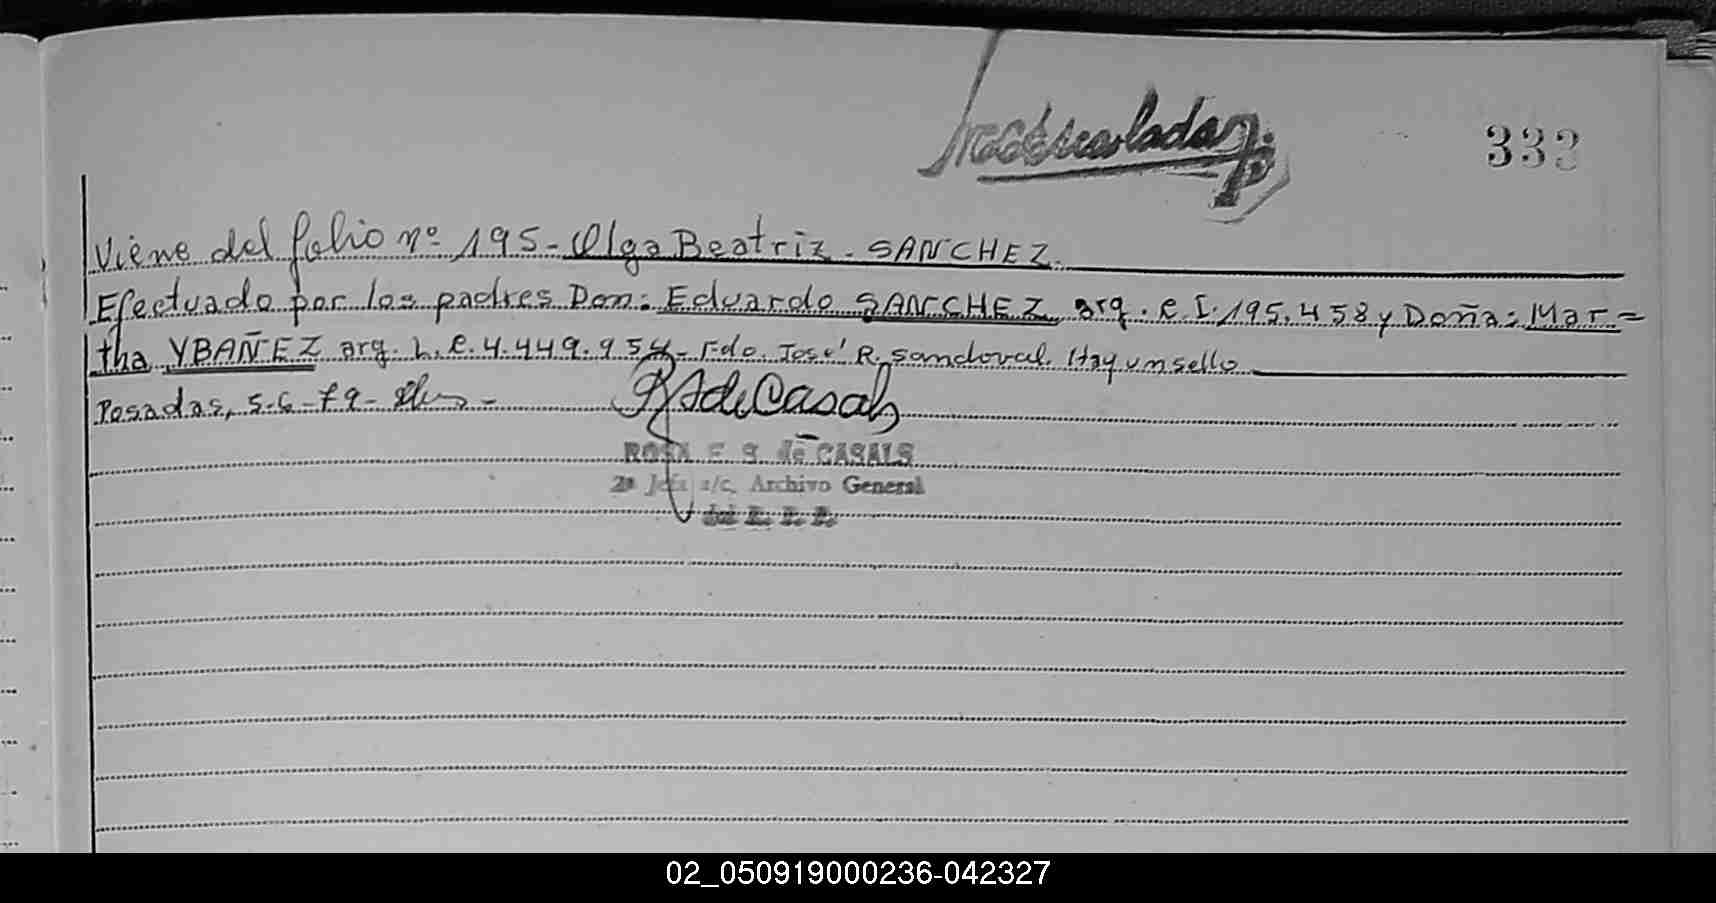 333
Viene del folio nº 195 - Olga Beatriz - SANCHEZ.
Efectuado por los padres Don: Eduardo SANCHEZ arg. C.I. 195.458 y Doña: Mar=
tha YBAÑEZ arg. L.C. 4.449.954 - Fdo. José R. Sandoval. Hay un sello
Posadas, 5-6-79 -
ROSA E. S. de CASALS
2ª Jefa a/c. Archivo General
del R. P. P.
02_050919000236-042327